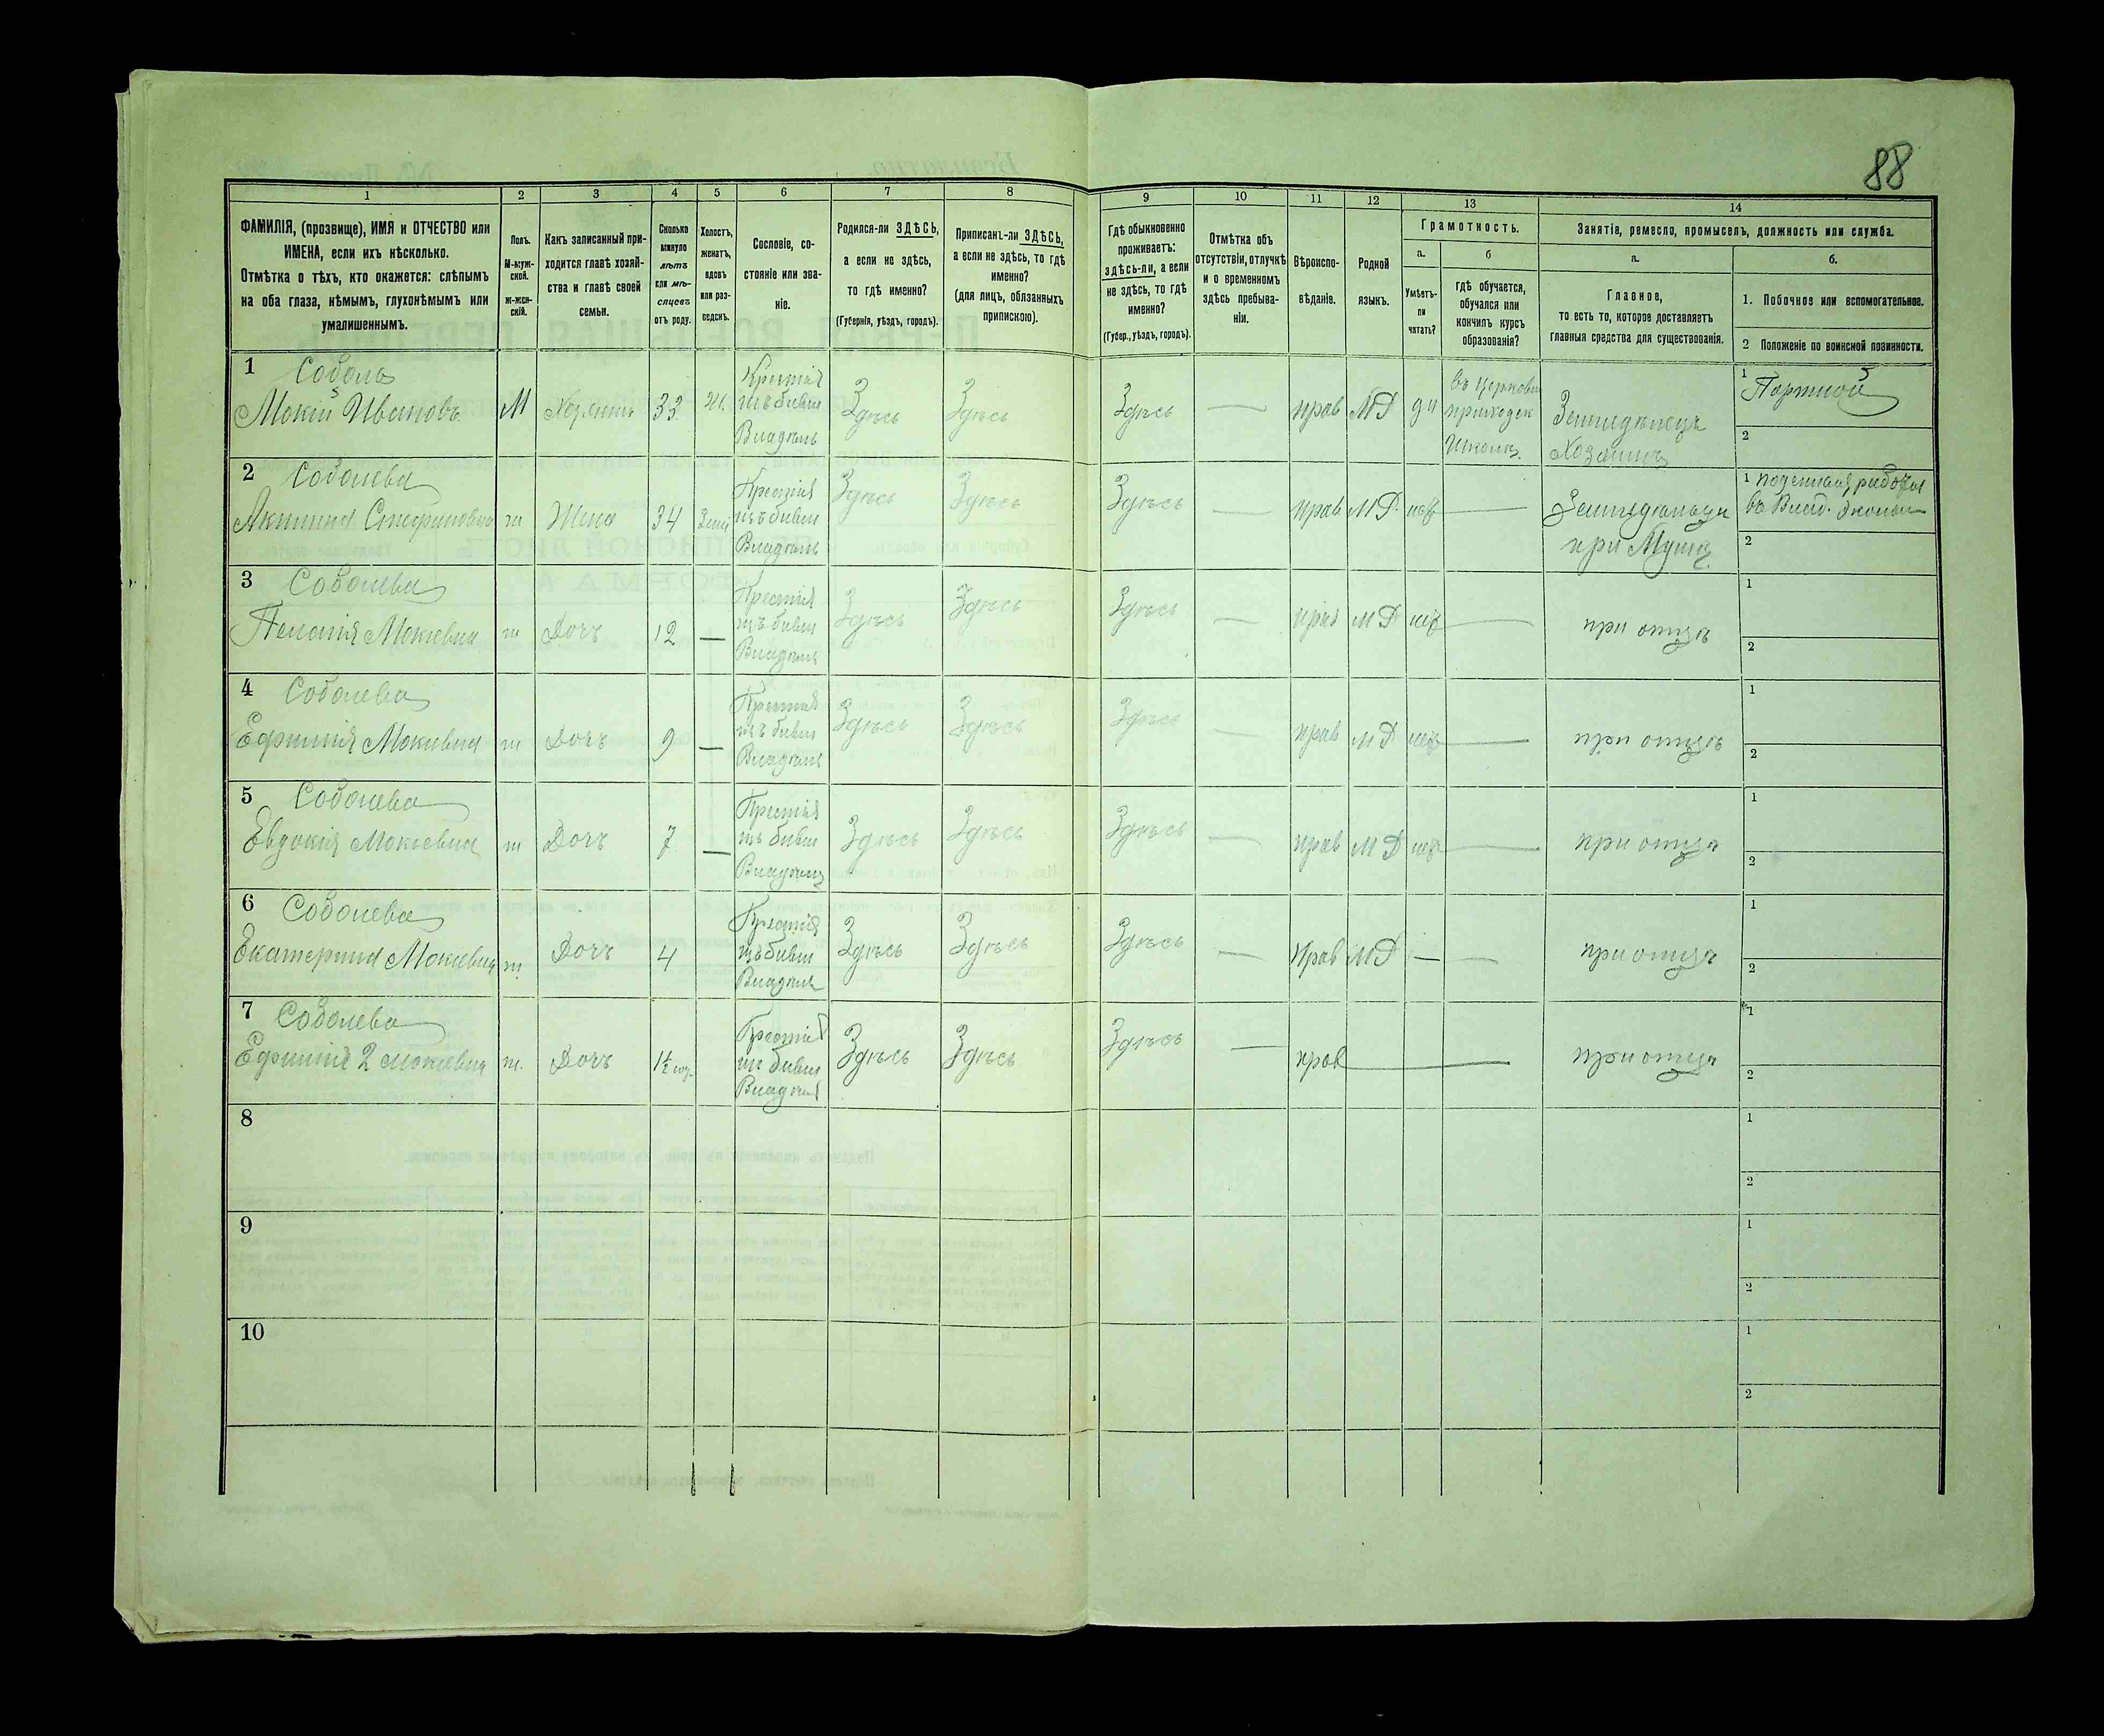 88
1
2
3
4
5
6
7
8
9
10
11
12
13
14
ФАМИЛІЯ, (прозвище), ИМЯ и ОТЧЕСТВО или
ИМЕНА, если ихъ нѣсколько.
Отмѣтка о тѣхъ, кто окажется: слѣпымъ
на оба глаза, нѣмымъ, глухонѣмымъ или
умалишеннымъ.
Полъ.
М-муж-
ской.
Ж-жен-
скій.
Какъ записанный при-
ходится главѣ хозяй-
ства и главѣ своей
семьи.
Сколько
минуло
лѣтъ
или мѣ-
сяцевъ
отъ роду.
Холостъ,
женатъ,
вдовъ
или раз-
веденъ.
Сословіе, со-
стояніе или зва-
ніе.
Родился-ли ЗДѢСЬ,
а если не здѣсь,
то гдѣ именно?
(Губернія, уѣздъ, городъ).
Приписанъ-ли ЗДѢСЬ,
а если не здѣсь, то гдѣ
именно?
(для лицъ, обязанныхъ
припискою).
Гдѣ обыкновенно
проживаетъ:
здѣсь-ли, а если
не здѣсь, то гдѣ
именно?
(Губер., уѣздъ, городъ).
Отмѣтка объ
отсутствіи, отлучкѣ
и о временномъ
здѣсь пребыва-
ніи.
Вѣроиспо-
вѣданіе.
Родной
языкъ.
Грамотность.
а.
Умѣетъ-
ли
читать?
б
гдѣ обучается,
обучался или
кончилъ курсъ
образованія?
Занятіе, ремесло, промыселъ, должность или служба.
а.
Главное,
то есть то, которое доставляетъ
главныя средства для существованія.
б.
1. Побочное или вспомогательное.
2 Положеніе по воинской повинности.
1 Соболь
Мокій Ивановъ
М
Хозяинъ
33
Ж.
Крестья
изъ бывш
Владѣль
Здѣсь
Здѣсь
Здѣсь
—
прав
МР
да
въ Церковн
приходск
Школѣ.
Земледѣлецъ
Хозяинъ
1 Портной
2
2 Соболева
Акилина Стефановна
ж
Жена
34
Крестья
изъ бывш
Владѣль
Здѣсь
Здѣсь
Здѣсь
—
прав
МР.
нѣт
—
при Мужѣ
1 поденная
2
3 Соболева
Пелагія Мокіевна
ж
Дочъ
12
—
Крестья
изъ бывш
Владѣль
Здѣсь
Здѣсь
Здѣсь
—
прав
МР
нѣт
—
при отцѣ
1
2
4 Соболева
Ефимія Мокіевна
ж
Дочъ
9
—
Крестья
изъ бывш
Владѣль
Здѣсь
Здѣсь
Здѣсь
—
прав
МР
нѣт
—
при отцѣ
1
2
5 Соболева
Евдокія Мокіевна
ж
Дочъ
7
—
Крестья
изъ бывш
Владѣль
Здѣсь
Здѣсь
Здѣсь
—
прав
МР
нѣт
—
при отцѣ
1
2
6 Соболева
Екатерина Мокіевна
ж
Дочъ
4
Крестья
изъ бывш
Владѣль
Здѣсь
Здѣсь
Здѣсь
—
Прав
МР
—
—
при отцѣ
1
2
7 Соболева
Ефимія 2 Мокіевна
ж.
Дочъ
1½
Крестья
из бывш
Владѣль
Здѣсь
Здѣсь
Здѣсь
—
прав
—
при отцѣ
1
2
8
1
2
9
1
2
10
1
2